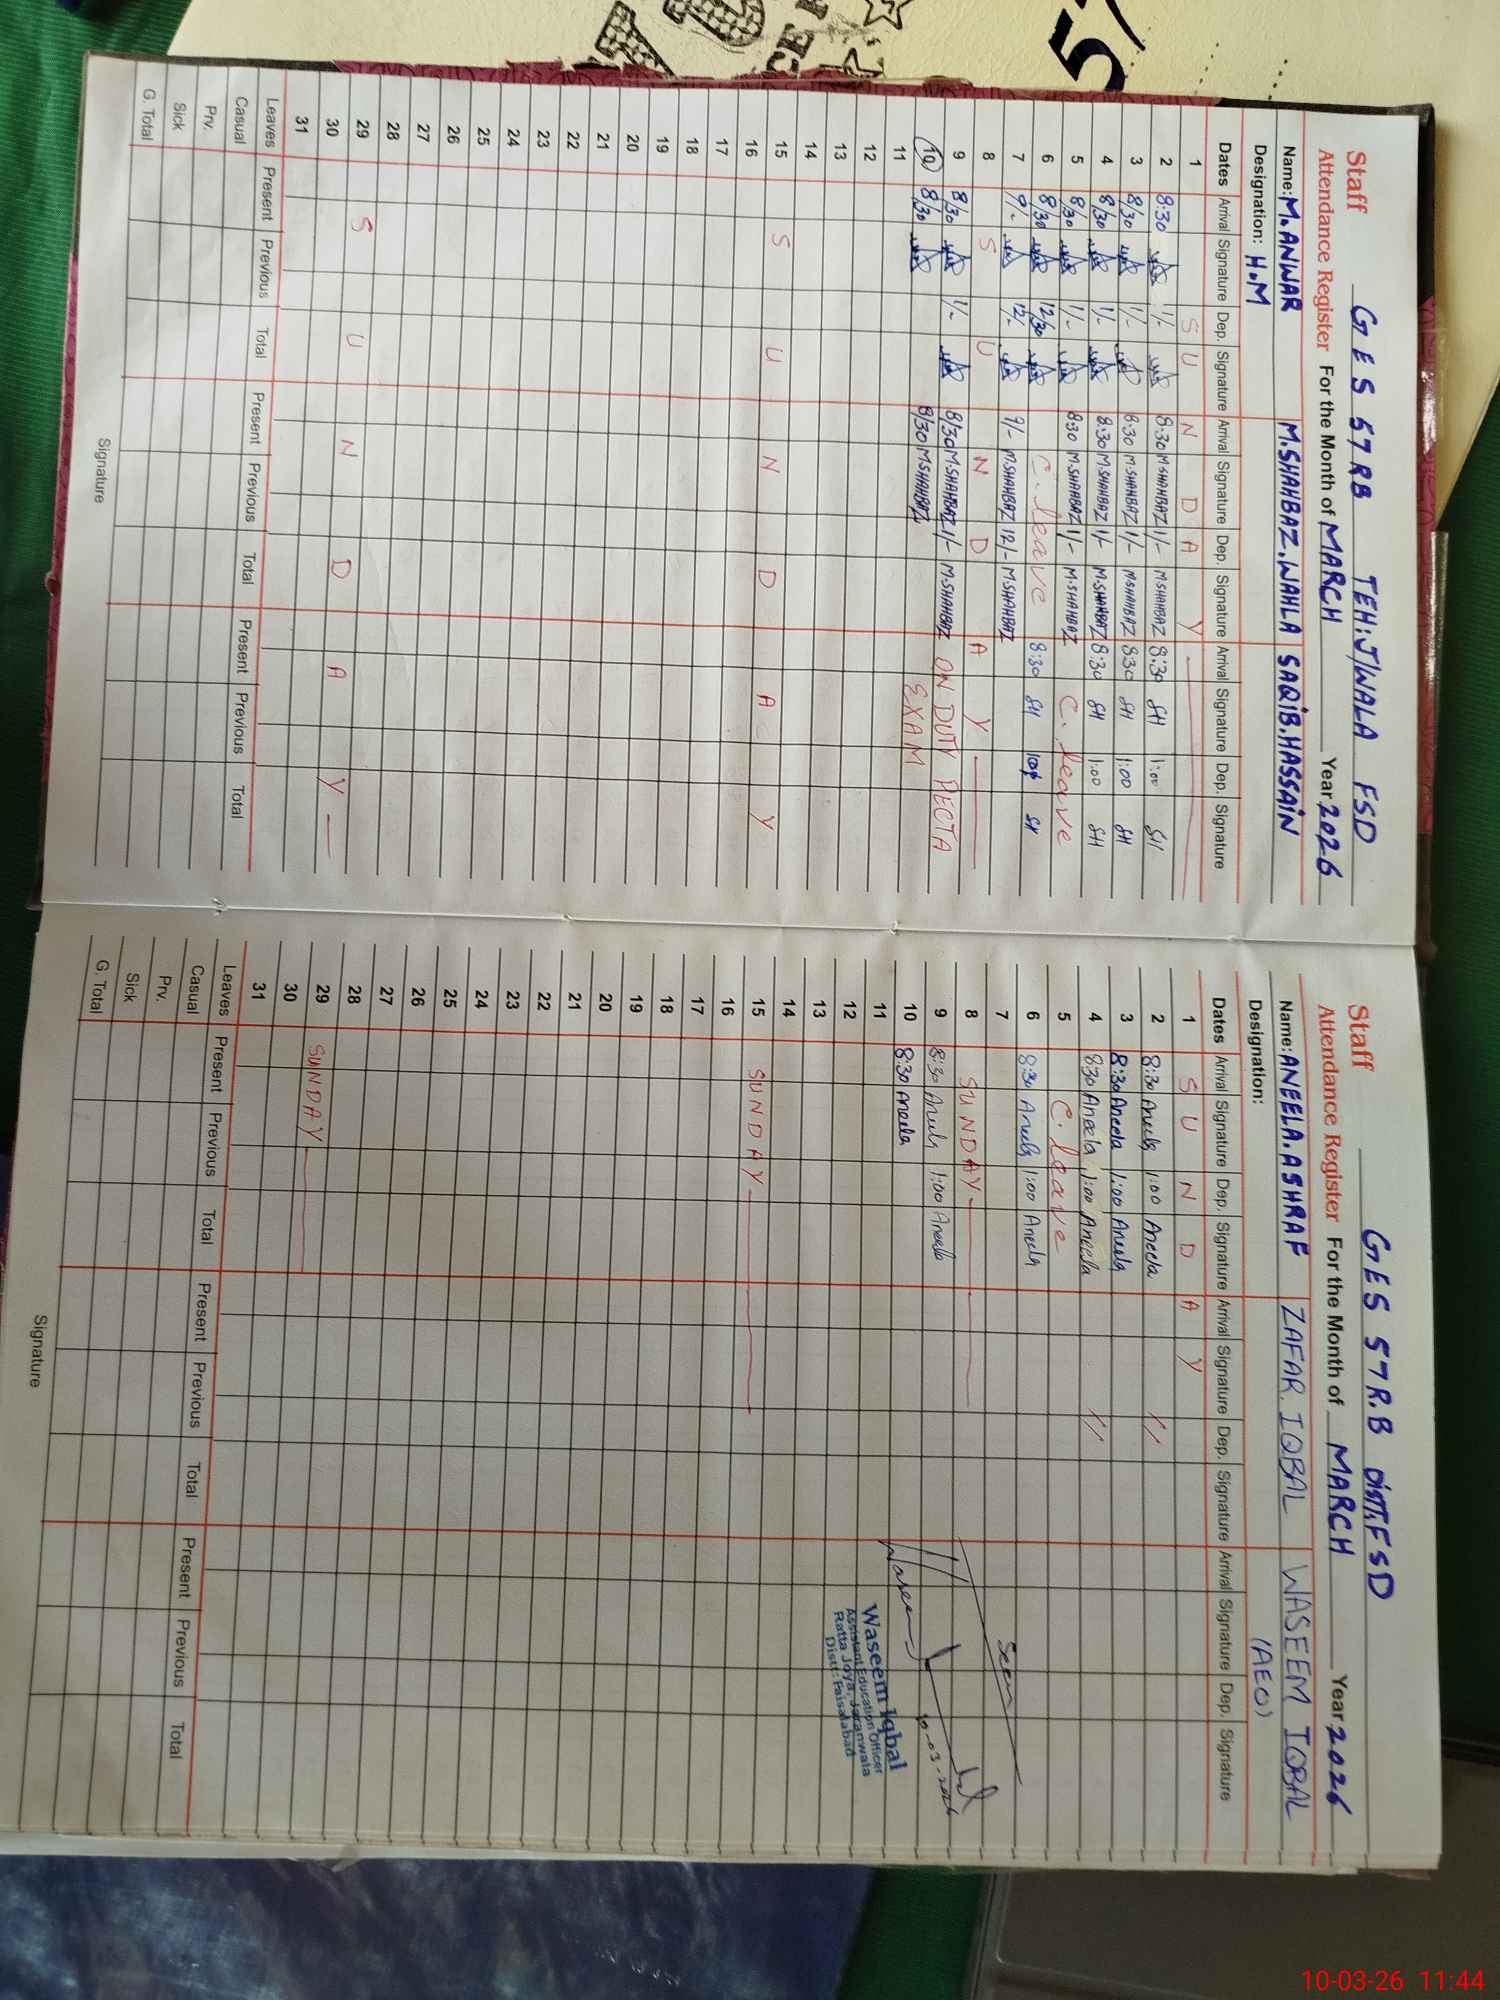 Staff GES 57 RB TEH:J/WALA FSD
Attendance Register For the Month of MARCH Year 2026
Name: M.ANWAR M.SHAHBAZ.WAHLA SAQIB.HASSAIN
Designation: H.M
Dates Arrival Signature Dep. Signature Arrival Signature Dep. Signature Arrival Signature Dep. Signature
1 S U N D A Y
2 8:30 1/- 8:30 M.SHAHBAZ 1/- M.SHAHBAZ 8:30 SH 1:00 SH
3 8/30 1/- 8:30 M.SHAHBAZ 1/- M.SHAHBAZ 8:30 SH 1:00 SH
4 8/30 1/- 8:30 M.SHAHBAZ 1/- M.SHAHBAZ 8:30 SH 1:00 SH
5 8/30 1/- 830 M.SHAHBAZ 1/- M.SHAHBAZ C. leave
6 8/30 12/30 C. leave 8:30 SH SH
7 9/- 12/- 9/- M.SHAHBAZ 12/- M.SHAHBAZ
8 S U N D A Y
9 8/30 1/- 8/30 M.SHAHBAZ 1/- M.SHAHBAZ ON DUTY PECTA
10 8/30 8/30 M.SHAHBAZ EXAM
11
12
13
14
15 S U N D A Y
16
17
18
19
20
21
22
23
24
25
26
27
28
29 S U N D A Y
30
31
Leaves Present Previous Total Present Previous Total Present Previous Total
Casual
Prv.
Sick
G. Total
Signature
Staff GES 57 R.B DISTT:FSD
Attendance Register For the Month of MARCH Year 2026
Name: ANEELA.ASHRAF ZAFAR. IQBAL WASEEM IQBAL
Designation: (AEO)
Dates Arrival Signature Dep. Signature Arrival Signature Dep. Signature Arrival Signature Dep. Signature
1 S U N D A Y
2 8:30 Aneela 1:00 Aneela
3 8:30 Aneela 1:00 Aneela
4 8:30 Aneela 1:00 Aneela
5 C. leave
6 8:30 Aneela 1:00 Aneela
7 Seen
8 SUNDAY
9 8:30 Aneela 1:00 Aneela
10 8:30 Aneela 10-03-2026
11 Waseem Iqbal
Assistant Education Officer
12 Ratta Joya, Jaranwala
Distt: Faisalabad
13
14
15 SUNDAY
16
17
18
19
20
21
22
23
24
25
26
27
28
29 SUNDAY
30
31
Leaves Present Previous Total Present Previous Total Present Previous Total
Casual
Prv.
Sick
G. Total
Signature
10-03-26 11:44